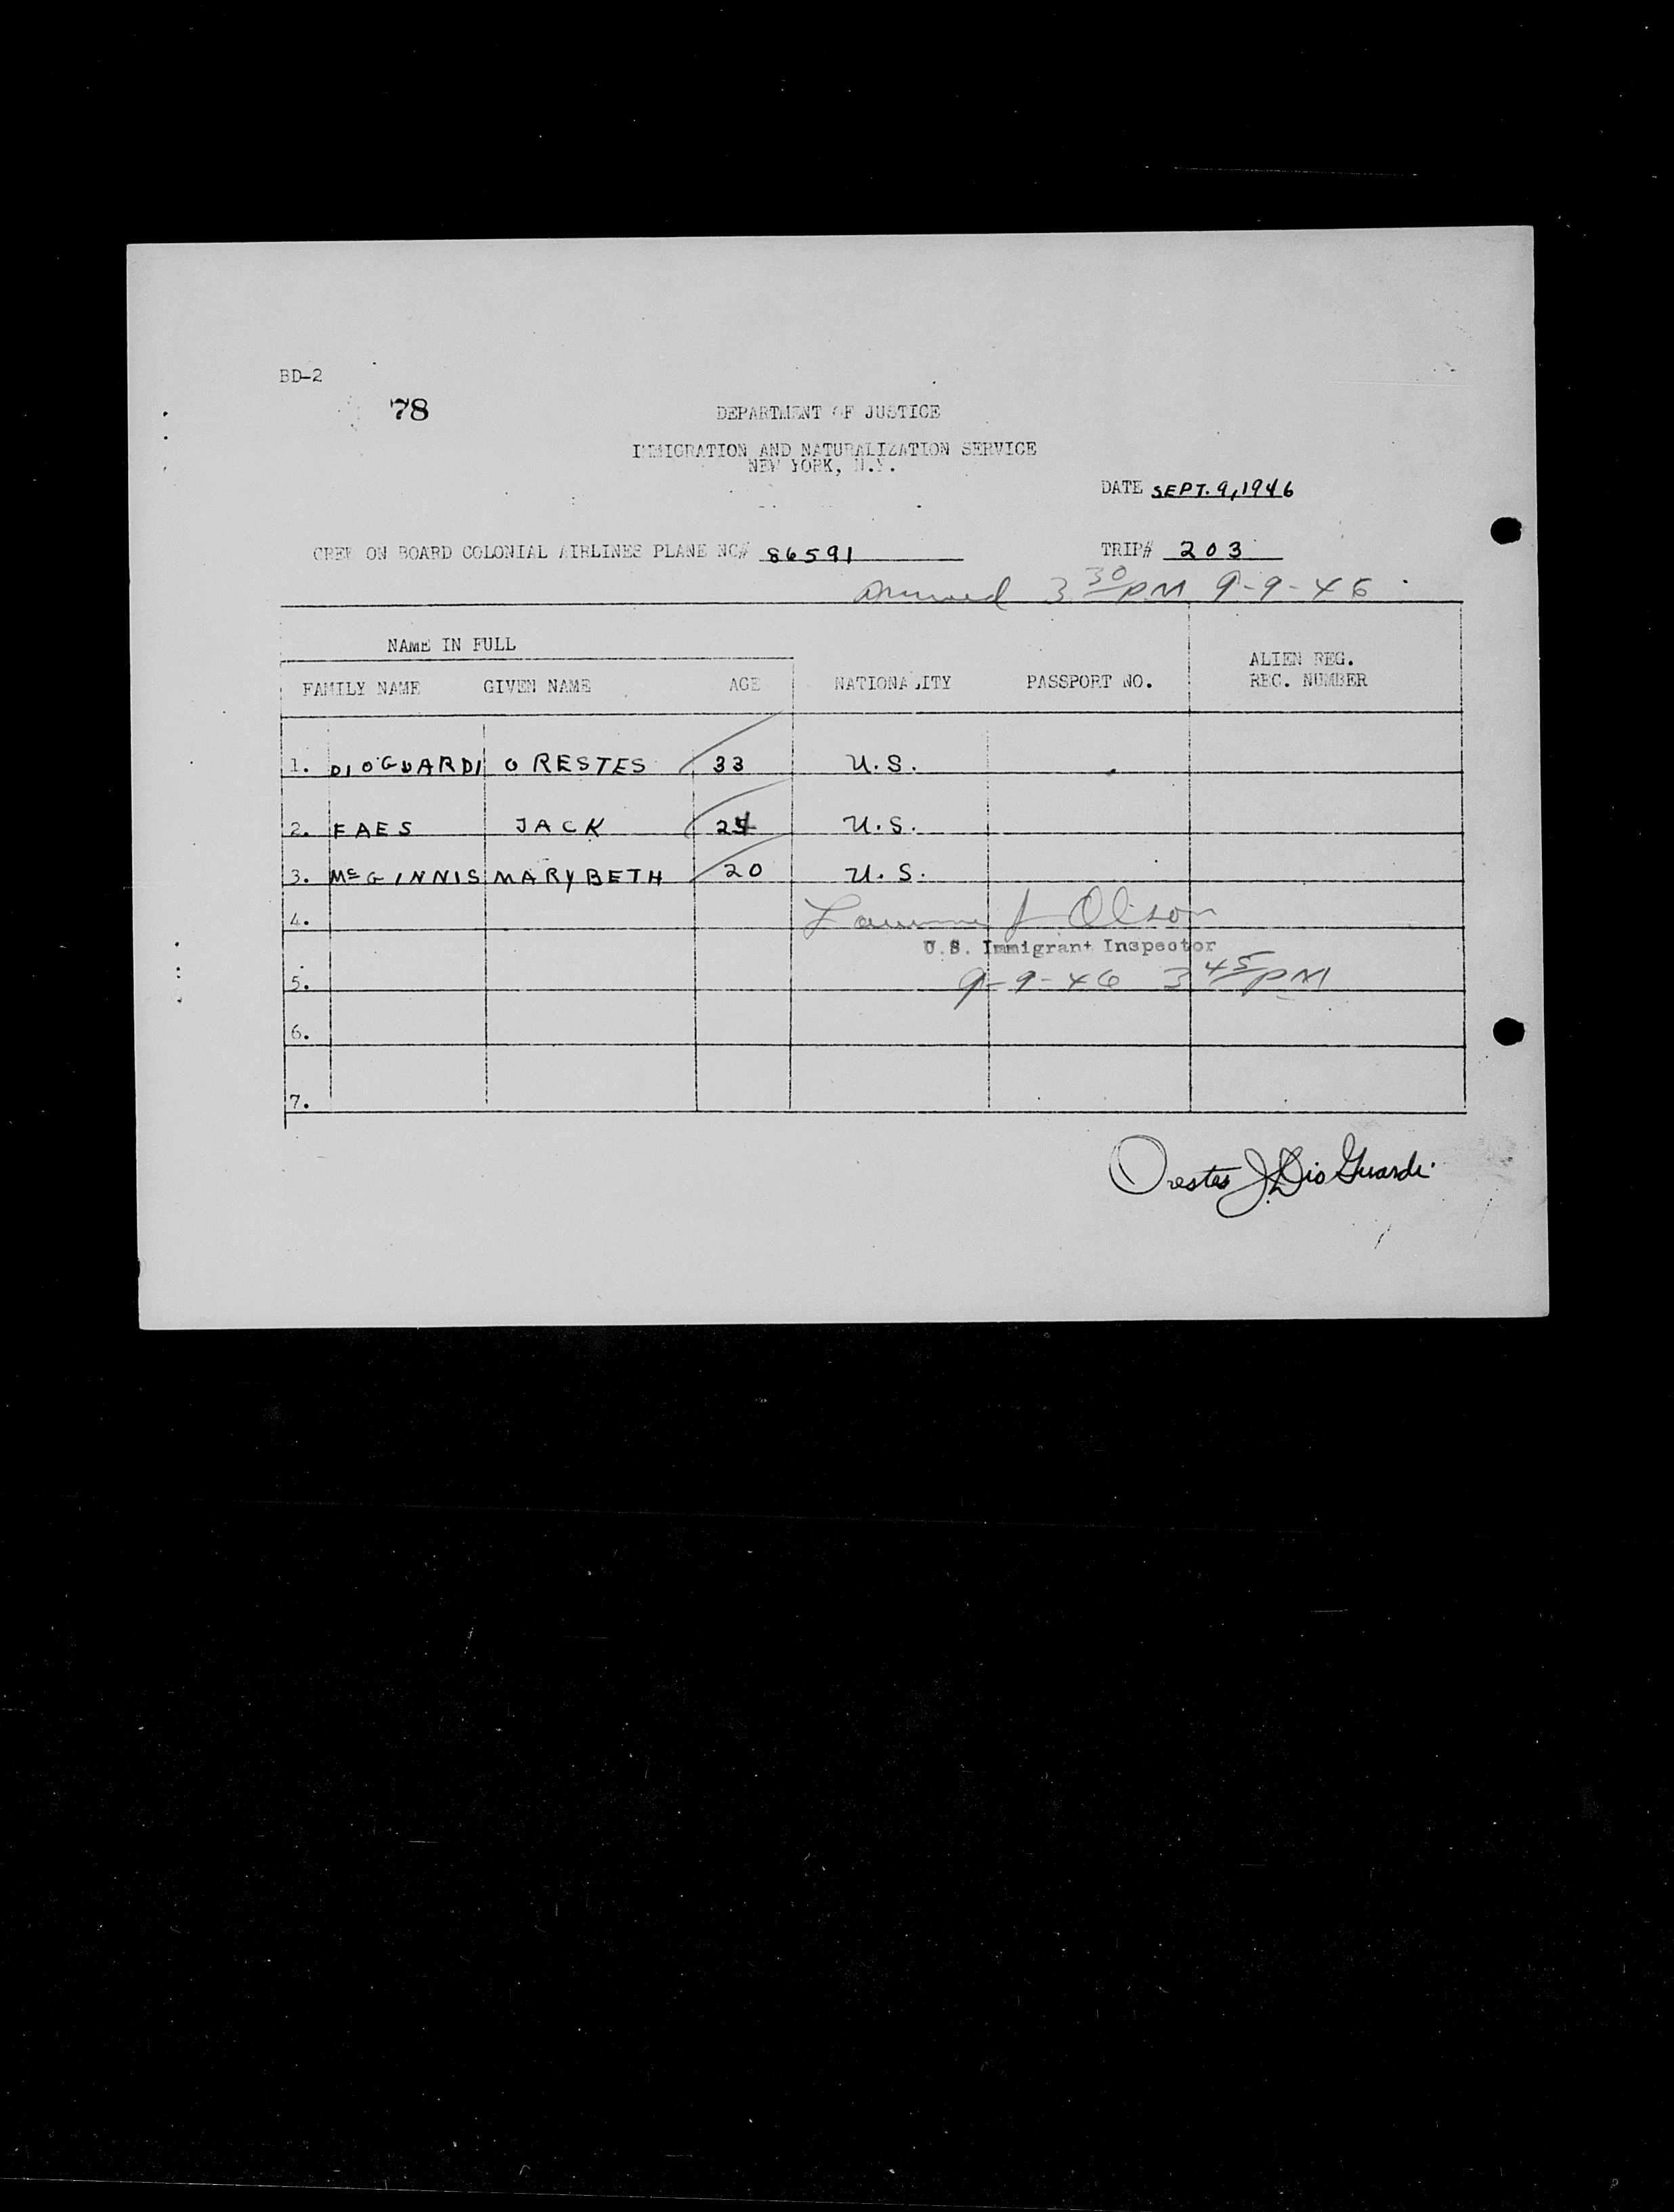 BD-2
78
DEPARTMENT OF JUSTICE
IMMIGRATION AND NATURALIZATION SERVICE
NEW YORK, N.Y.
DATE SEPT. 9, 1946
CREW ON BOARD COLONIAL AIRLINES PLANE NC# 86591 TRIP# 203
Arrived 3 30 PM 9-9-46
NAME IN FULL
FAMILY NAME GIVEN NAME AGE NATIONALITY PASSPORT NO. ALIEN REG. REC. NUMBER
1. DIOGUARDI ORESTES 33 U.S.
2. FAES JACK 24 U.S.
3. McGINNIS MARYBETH 20 U.S.
4. Olson
U.S. Immigrant Inspector
5. 9-9-46 3 45 PM
6.
7.
Orestes J. DioGuardi